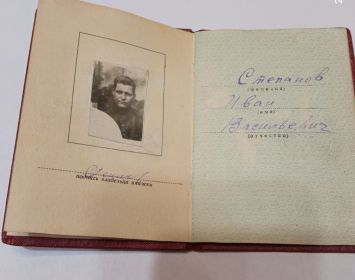 Степанов
(фамилия)
Иван
(имя)
Васильевич
(отчество)
подпись владельца книжки